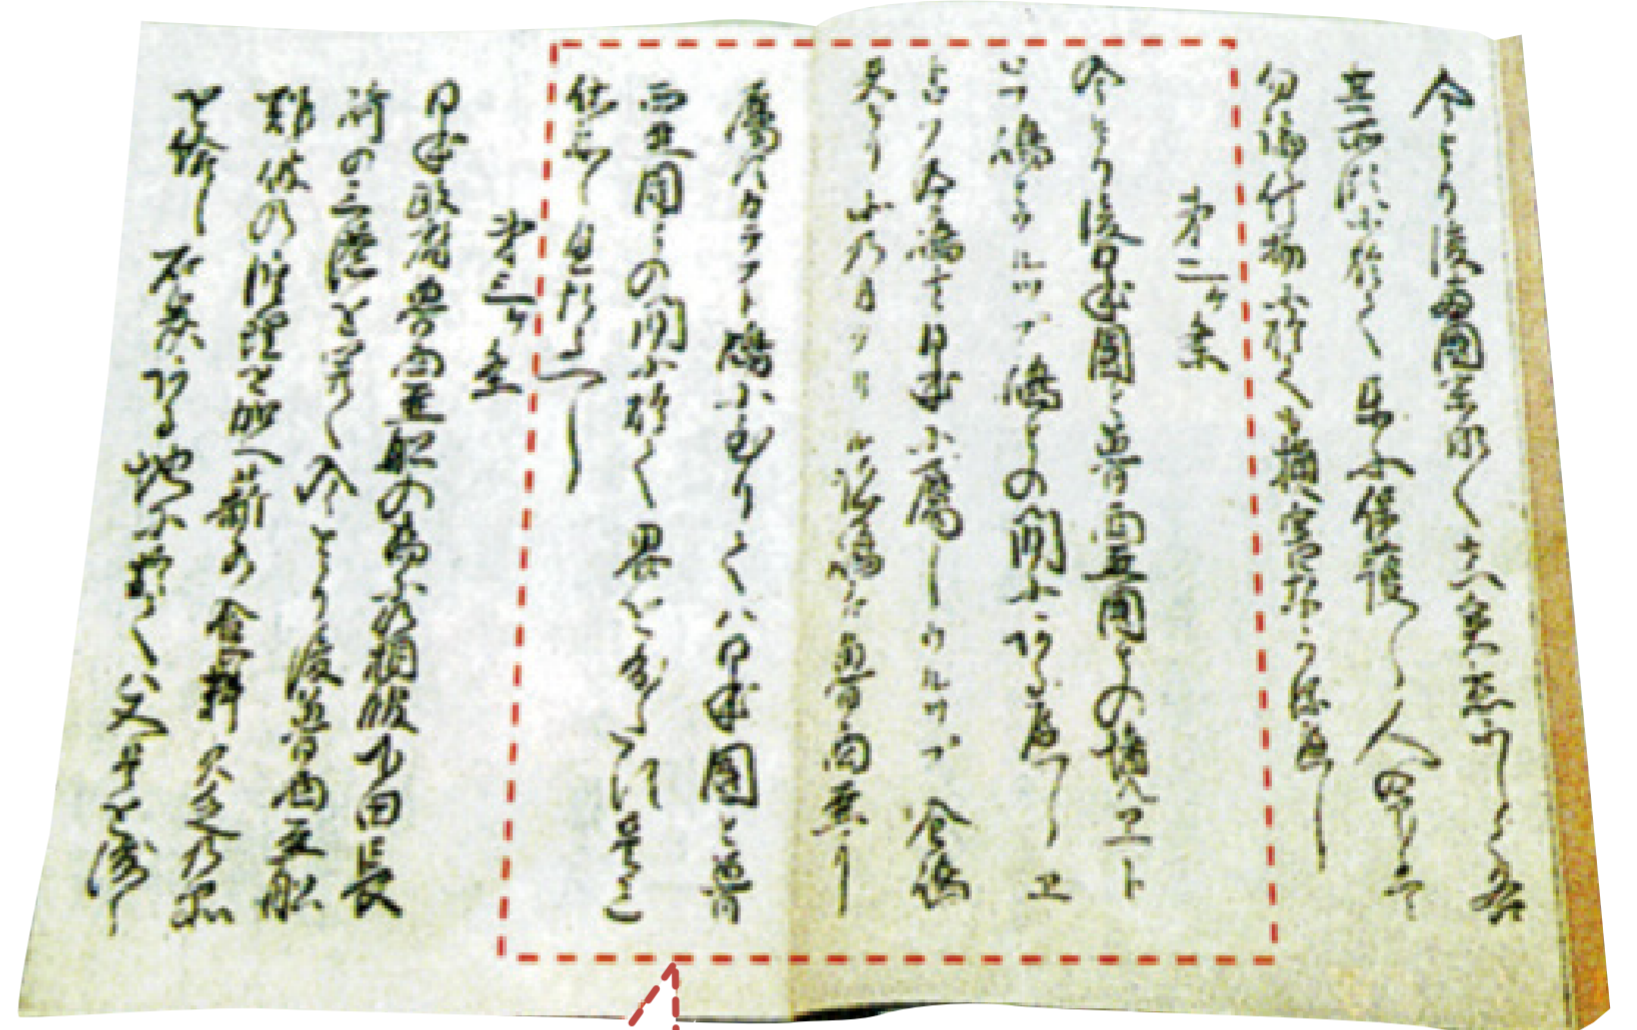 今より後両国末永く真実懇にして各
其所領に於て互に保護し人命ハ
勿論什物に於ても損害なかるへし
第二ヶ条
今より後日本国と魯西亜国との境ヱト
ロプ島とウルップ島との間にあるへしヱ
トロプ全島ハ日本に属しウルップ全島
夫より北の方クリル諸島ハ魯西亜に
属すカラフト島に至りてハ日本国と魯
西亜国との間に於て界を分たす是まて
仕来の通たるへし
第三ヶ条
日本政府魯西亜船の為に箱館下田長
崎の三港をひらく今より後魯西亜船
難破の修理を加へ薪水食料欠乏の品
を給し石炭ある地に於てハ又是を渡し